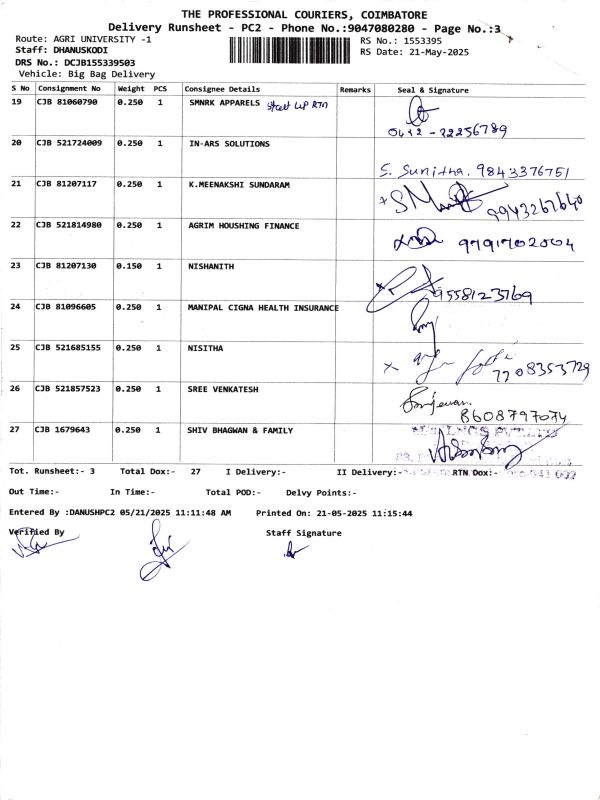 THE PROFESSIONAL COURIERS, COIMBATORE
Delivery Runsheet - PC2 - Phone No.:9047080280 - Page No.:3
Route: AGRI UNIVERSITY -1
RS No.: 1553395
Staff: DHANUSKODI
RS Date: 21-May-2025
DRS No.: DCJB155339503
Vehicle: Big Bag Delivery
S No Consignment No Weight PCS Consignee Details Remarks Seal & Signature
19 CJB 81060790 0.250 1 SMNRK APPARELS RTN
0422 - 22256789
20 CJB 521724009 0.250 1 IN-ARS SOLUTIONS
S. Sunitha. 9843376751
21 CJB 81207117 0.250 1 K.MEENAKSHI SUNDARAM
9943267640
22 CJB 521814980 0.250 1 AGRIM HOUSHING FINANCE
9791702004
23 CJB 81207130 0.150 1 NISHANITH
9558123769
24 CJB 81096605 0.250 1 MANIPAL CIGNA HEALTH INSURANCE
25 CJB 521685155 0.250 1 NISITHA
7208353729
26 CJB 521857523 0.250 1 SREE VENKATESH
8608797074
27 CJB 1679643 0.250 1 SHIV BHAGWAN & FAMILY
Tot. Runsheet:- 3 Total Dox:- 27 I Delivery:- II Delivery:- RTN Dox:-
Out Time:- In Time:- Total POD:- Delvy Points:-
Entered By :DANUSHPC2 05/21/2025 11:11:48 AM Printed On: 21-05-2025 11:15:44
Verified By Staff Signature